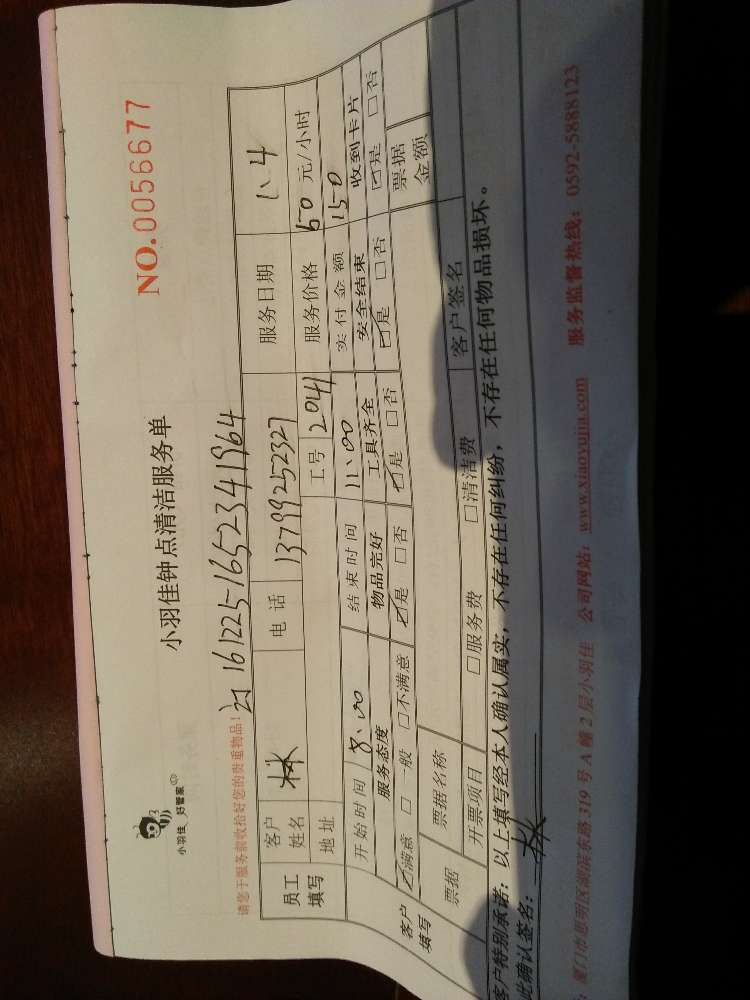 小羽佳 好管家
小羽佳钟点清洁服务单
NO.0056677
请您于服务前收拾好您的贵重物品!
161225-1652341964
员工填写
客户姓名 林 电话 13799252327 服务日期 1.4
地址 工号 2041 服务价格 50 元/小时
开始时间 8:00 结束时间 11:00 实付金额 150
客户填写
服务态度 物品完好 工具齐全 安全结束 收到卡片
☑满意 □一般 □不满意 ☑是 □否 ☑是 □否 ☑是 □否 ☑是 □否
票据 票据名称 票据金额
开票项目 □服务费 □清洁费 客户签名
客户特别承诺:以上填写经本人确认属实,不存在任何纠纷,不存在任何物品损坏。
此确认签名: 林
厦门市思明区湖滨东路 319 号 A 幢 2 层小羽佳 公司网站:www.xiaoyujia.com 服务监督热线:0592-5888123